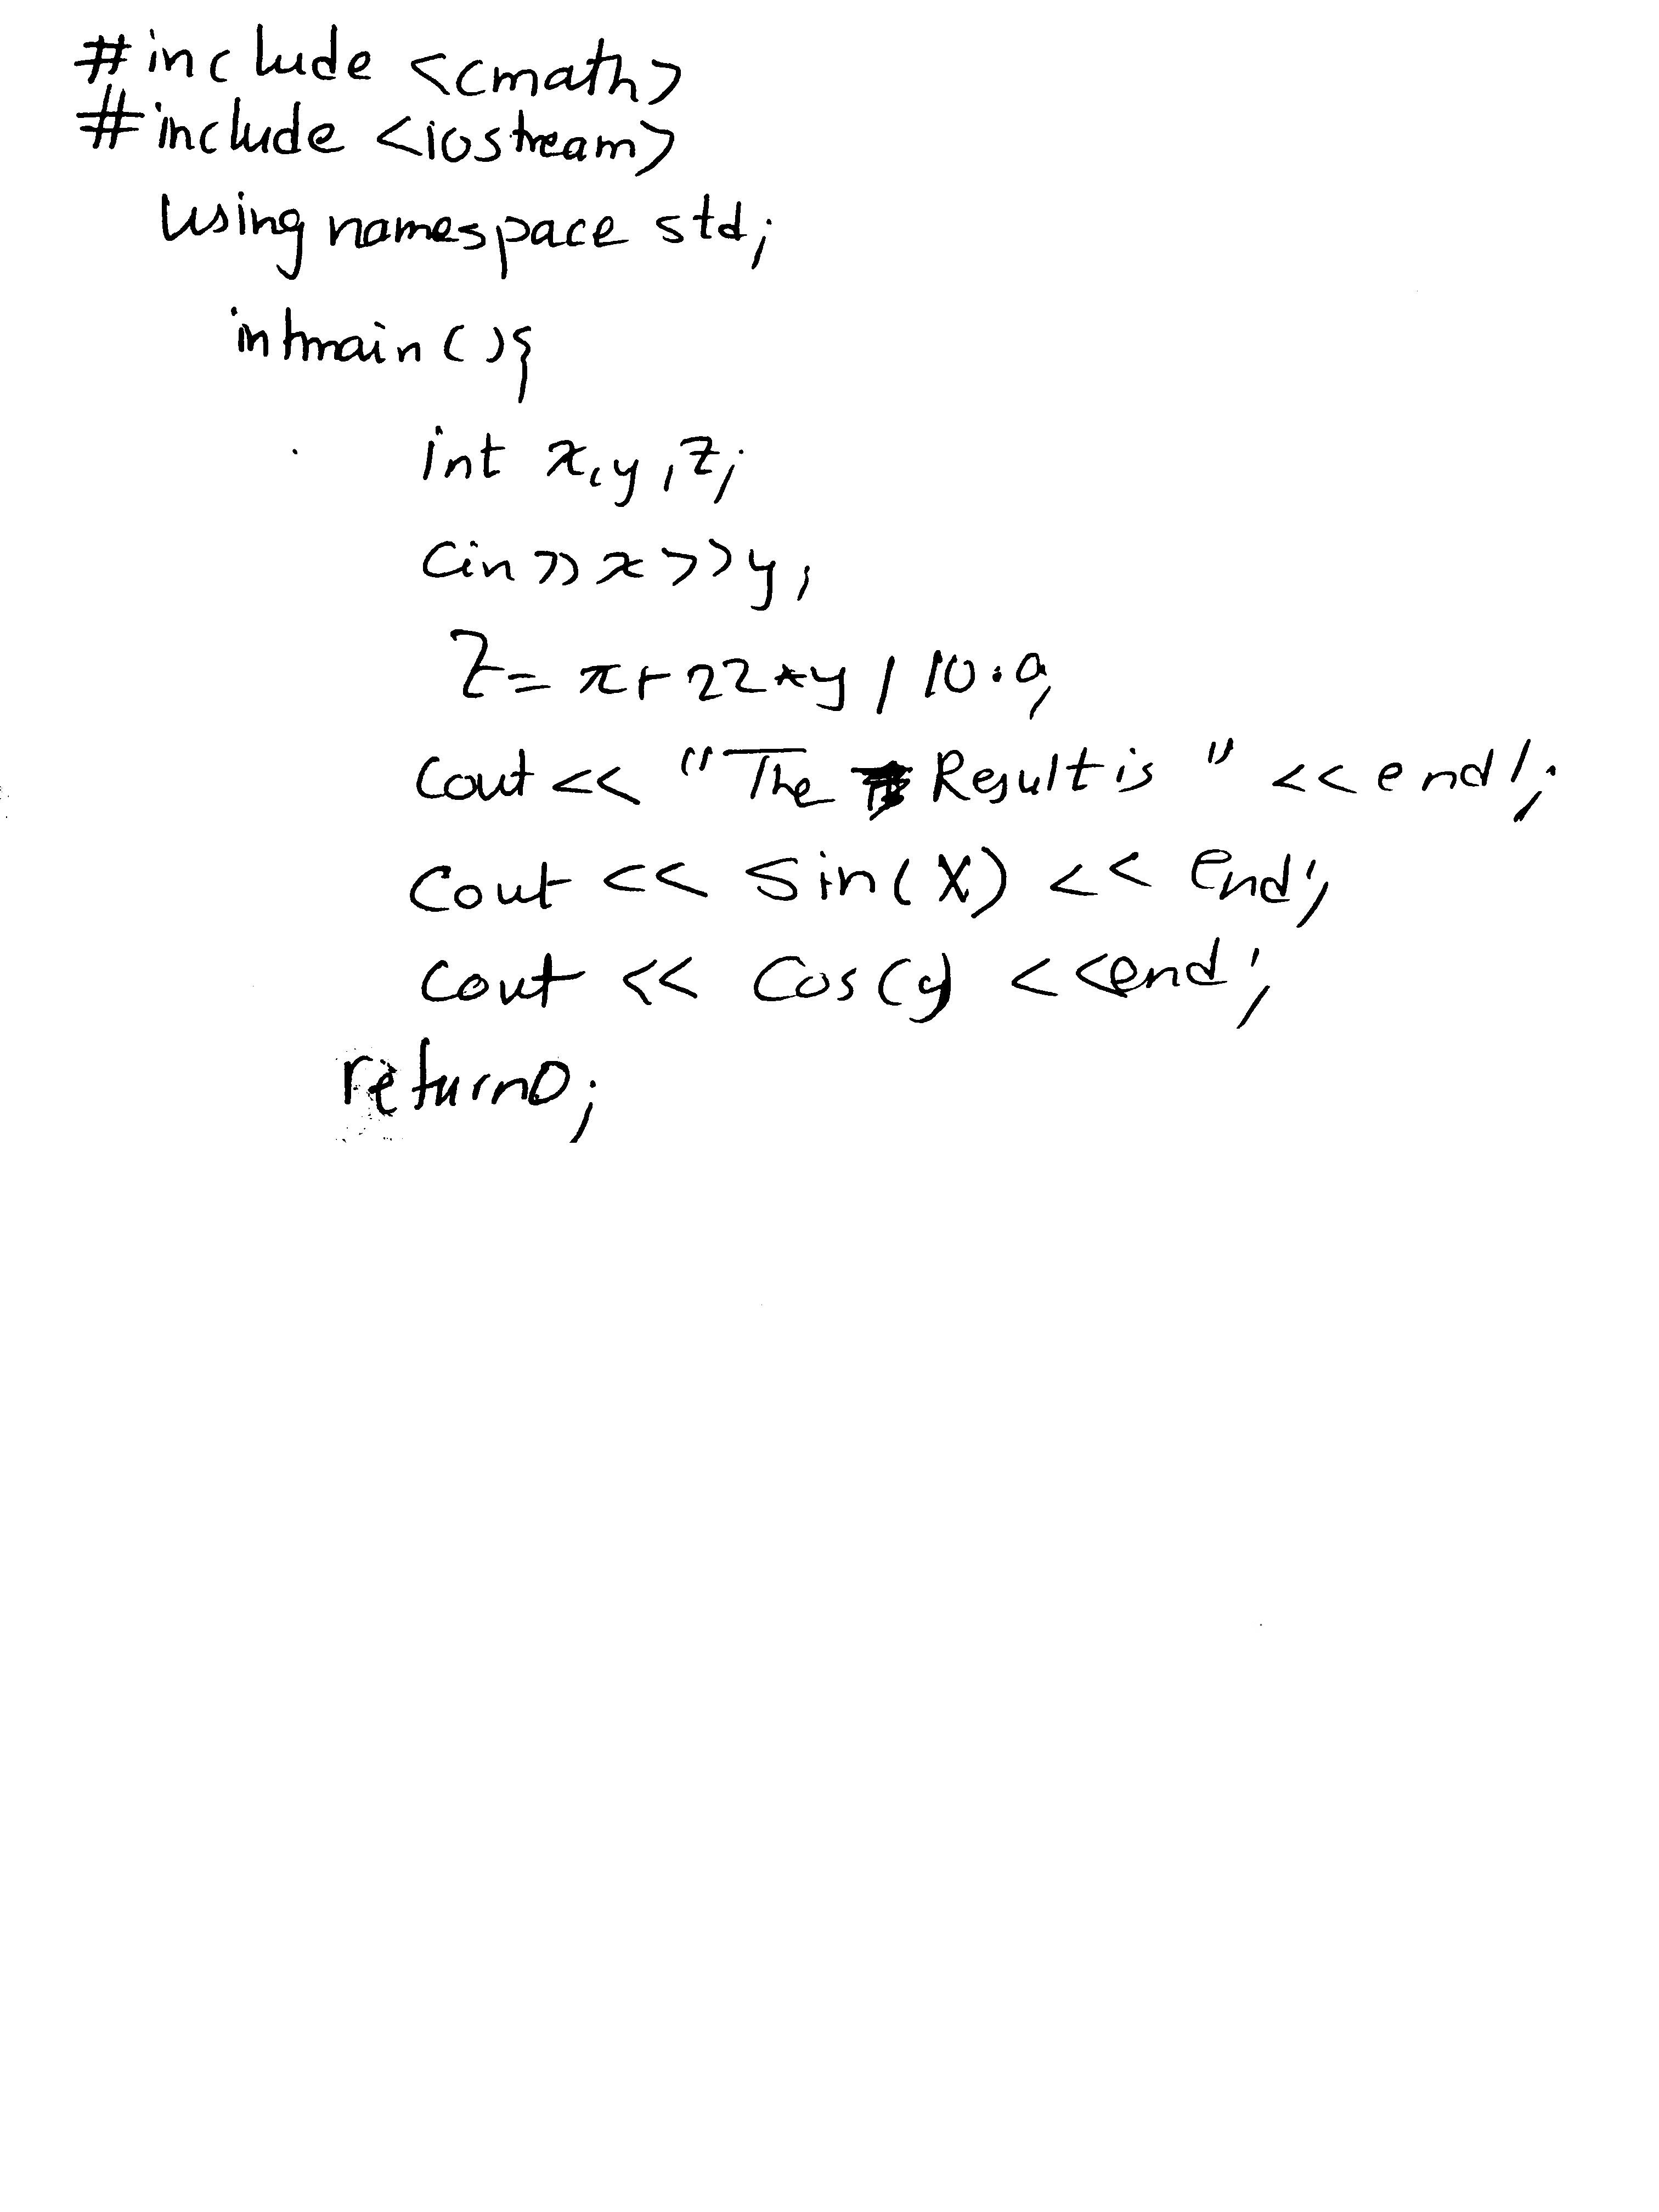 #include <cmath>
#include <iostream>
using namespace std;
intmain(){
int x,y,z;
Cin>>x>>y;
Z= x+22*y/10.0;
Cout<< "The Result is " <<endl;
Cout << Sin(X) << end;
Cout << Cos(y) <<end;
return0;